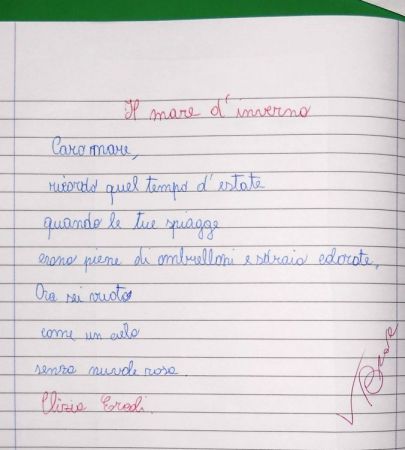 Il mare d'inverno
Caro mare,
ricordo quel tempo d'estate
quando le tue spiagge
erano piene di ombrelloni e sdraio colorate,
Ora sei vuoto
come un cielo
senza nuvole rosa.
Clizia Eredi.